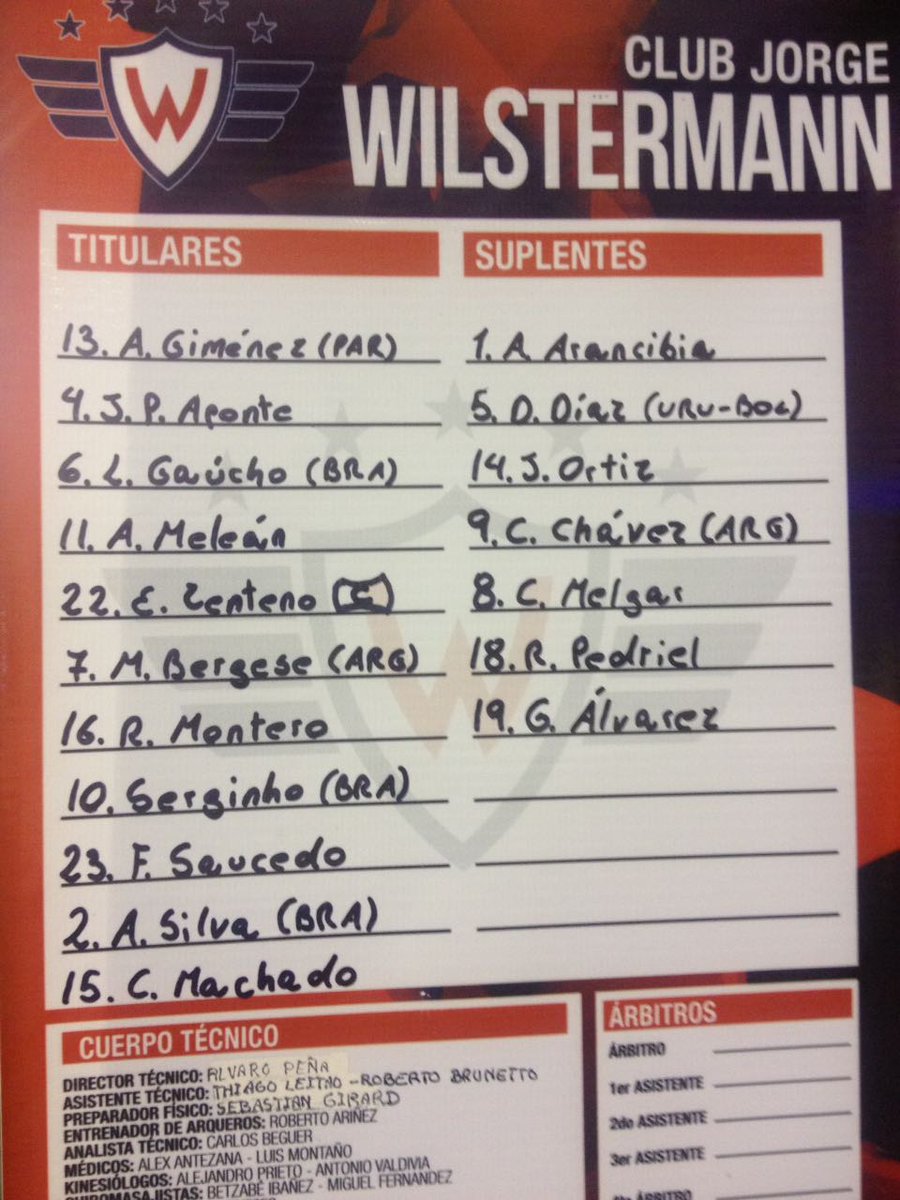 W
CLUB JORGE
WILSTERMANN
TITULARES
13. A. Giménez (PAR)
4. J. P. Aponte
6. L. Gaúcho (BRA)
11. A. Meleán
22. E. Zenteno C
7. M. Bergese (ARG)
16. R. Montero
10. Serginho (BRA)
23. F. Saucedo
2. A. Silva (BRA)
15. C. Machado
SUPLENTES
1. A. Arancibia
5. D. Díaz (URU-BOL)
14. J. Ortiz
9. C. Chávez (ARG)
8. C. Melgar
18. R. Pedriel
19. G. Álvarez
CUERPO TÉCNICO
DIRECTOR TÉCNICO: ALVARO PEÑA
ASISTENTE TÉCNICO: THIAGO LEITAO - ROBERTO BRUNETTO
PREPARADOR FÍSICO: SEBASTIAN GIRARD
ENTRENADOR DE ARQUEROS: ROBERTO ARIÑEZ
ANALISTA TÉCNICO: CARLOS BEGUER
MÉDICOS: ALEX ANTEZANA - LUIS MONTAÑO
KINESIÓLOGOS: ALEJANDRO PRIETO - ANTONIO VALDIVIA
QUIROMASAJISTAS: BETZABÉ IBAÑEZ - MIGUEL FERNANDEZ
ÁRBITROS
ÁRBITRO
1er ASISTENTE
2do ASISTENTE
3er ASISTENTE
4to ÁRBITRO